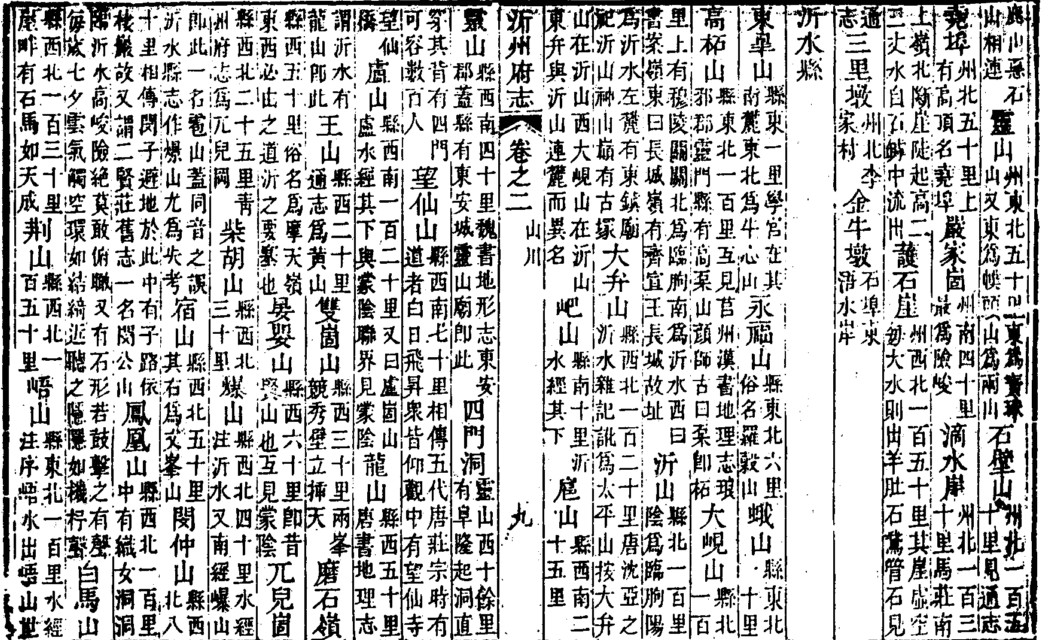 鹿山縣石山相連 靈山 州東北五十里東為寶珠山又東為幞頭山為兩山 石壁山 州北一百五十里見通志
堯埠 州北五十里上有高頂名堯埠 嚴家崮 州南四十里最為險峻 滴水岸 州北一百三十里馬莊南
上嶺北斷崖陡起高二三丈水自石鱗中流出 護石崖 州西北一百五十里其崖虛空每大水則出羊肚石鷲管石見
通志 三里墩 州北李家村 金牛墩 石埠東浯水岸
沂水縣
東皐山 縣東一里學宮在其南麓東北為牛心山 永福山 縣東北六里俗名羅縠山 蛾山 縣東北十里
高柘山 縣北一百里互見莒州漢書地理志琅邪郡靈門縣有高㭓山顏師古曰㭓即柘 大峴山 縣北一百
里上有穆陵關關北為臨朐南為沂水西曰書案嶺東曰長城嶺有齊宣王長城故址 沂山 縣北一百里陰為臨朐陽
為沂水左麓有東鎮廟祀沂山神山巔有古塚 大弁山 縣西北一百二十里唐沈亞之沂水雜記訛為太平山按大弁
山在沂山西大峴山在沂山東弁與沂山連麓而異名 岠山 縣南十里沂水經其下 扈山 縣西南二十五里
沂州府志 卷之二 山川 九
靈山 縣西南四十里魏書地形志東安郡蓋縣有東安城靈山廟即此 四門洞 靈山西十餘里有阜隆起洞直
穿其背有四門可容數百人 望仙山 縣西南七十里相傳五代唐莊宗時有道者白日飛昇眾皆仰觀中有望仙寺
望仙橋 盧山 縣西南一百二十里又曰盧崮山盧水經其下與蒙陰聯界見蒙陰 龍山 縣西五十里唐書地理志
謂沂水有龍山即此 王山 縣西二十里通志為黄山 雙崮山 縣西三十里兩峯競秀壁立挿天 磨石嶺
縣西五十里俗名為摩天嶺東西必由之道沂之要塞也 晏婴山 縣西六十里即昔賢山也互見蒙陰 兀兒崮
縣西北二十五里青州府志為兀兒岡 柴胡山 縣西北三十里 爆山 縣西北四十里水經注沂水又南經爆山
即此一名雹山蓋同音之誤沂水縣志作爆山尤為失考 宿山 縣西北五十里其右為文峯山 閔仲山 縣西北八
十里相傳閔子避地於此中有子路依棲巖故又謂二賢莊舊志一名閔公山 鳳凰山 縣西北一百里中有織女洞洞
臨沂水高峻險絶莫敢俯瞰又有石形若鼓擊之有聲每歲七夕雲氣觸空環如結綺近聽之隱隱如機杼聲 白馬山
縣西北一百三十里崖畔有石馬如天成 荆山 縣西北一百五十里 峿山 縣東北一百里水經注序浯水出峿山世